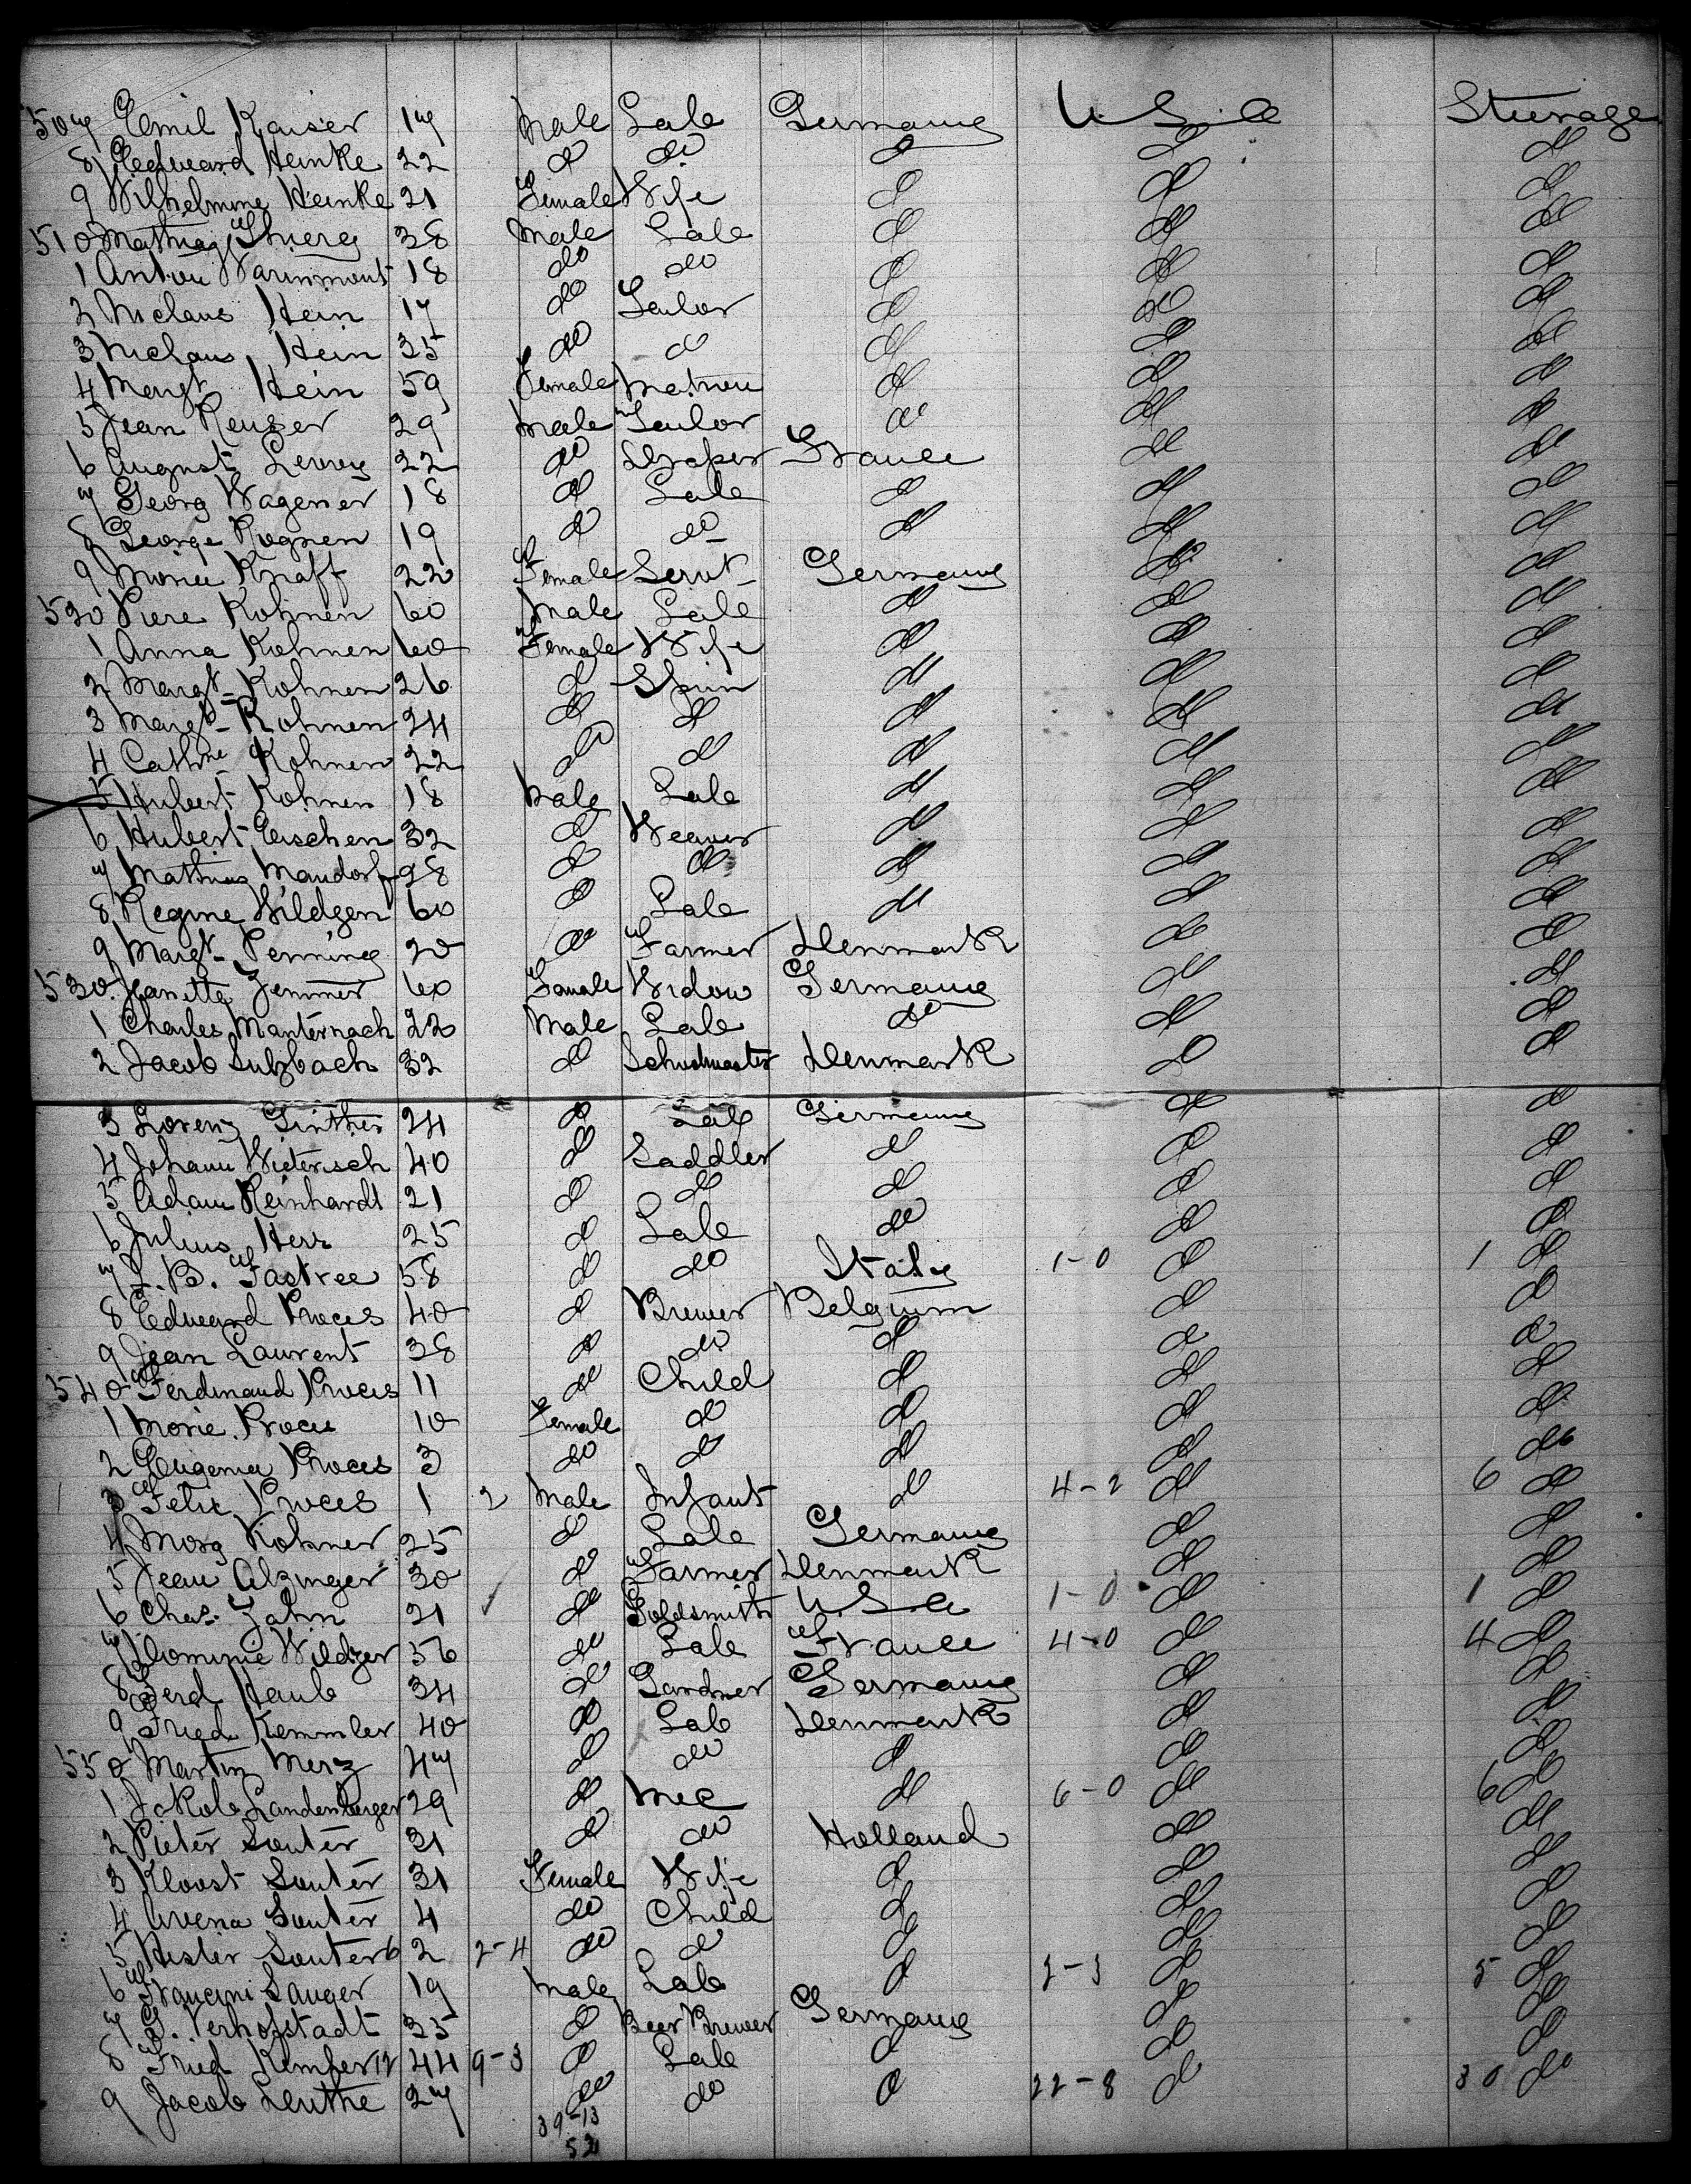 507 Emil Kaiser 17 Male Lab Germany U.S.A Steerage
8 Edward Heinke 22 do do do do do
9 Wilhelmine Heinke 21 Female Wife do do do
510 Mathias 38 Male Lab do do do
1 Anton Warinmont 18 do do do do do
2 Niclaus Hein 17 do Tailor do do do
3 Niclaus Hein 35 do do do do do
4 Margt Hein 59 Female Matron do do do
5 Jean Reuser 29 Male Tailor do do do
6 August Leroy 22 do Draper France do do
7 Georg Wagener 18 do Lab do do do
8 George Rognen 19 do do do do do
9 Marie Knaff 22 Female Servt Germany do do
520 Piere Kohnen 60 Male Lab do do do
1 Anna Kohnen 60 Female Wife do do do
2 Margt Kohnen 26 do Spin do do do
3 Margt Kohnen 24 do do do do do
4 Cathne Kohnen 22 do do do do do
5 Hubert Kohnen 18 Male Lab do do do
6 Hubert Eischen 32 do Weaver do do do
7 Mathias Mandorf 28 do do do do do
8 Regine Wildgen 60 do Lab do do do
9 Margt Penning 20 do Farmer Denmark do do
530 Janette Zemmer 60 Female Widow Germany do do
1 Charles Manternach 22 Male Lab do do do
2 Jacob Sulzbach 32 do Schoolmaster Denmark do do
3 Lorenz Ginther 24 do Lab Germany do do
4 Johann Wieterisch 40 do Saddler do do do
5 Adam Reinhardt 21 do do do do do
6 Julius Herr 25 do Lab do do do
7 L. B. Fastree 58 do do Italy 1-0 do 1 do
8 Edward Proces 40 do Brewer Belgium do do
9 Jean Laurent 38 do do do do do
540 Ferdinand Proces 11 do Child do do do
1 Marie Proces 10 Female do do do do
2 Eugenie Proces 3 do do do do do
3 Felix Proces 1 2 Male Infant do 4-2 do 6 do
4 Marg Kohner 25 do Lab Germany do do
5 Jean Alzinger 30 do Farmer Denmark do do
6 Chas. Zahn 21 do Goldsmith U.S.A 1-0 do 1 do
7 Dominic Wildger 56 do Lab France 4-0 do 4 do
8 Ferd Haub 34 do Gardner Germany do do
9 Fried. Kemmler 40 do Lab Denmark do do
550 Martin Merz 47 do do do do do
1 Jakob Landenberger 29 do Mec do 6-0 do 6 do
2 Pieter Souter 31 do do Holland do do
3 Kloost Souter 31 Female Wife do do do
4 Arena Souter 4 do Child do do do
5 Hester Souter 6 2 2-4 do do do do do
6 Sauger 19 Male Lab do 2-3 do 5 do
7 Verhofstadt 35 do Beer Brewer Germany do do
8 Fried Kemfer 12 44 9-3 do Lab do do do
9 Jacob Leuthe 27 do do do 22-8 do 30 do
39-13
52